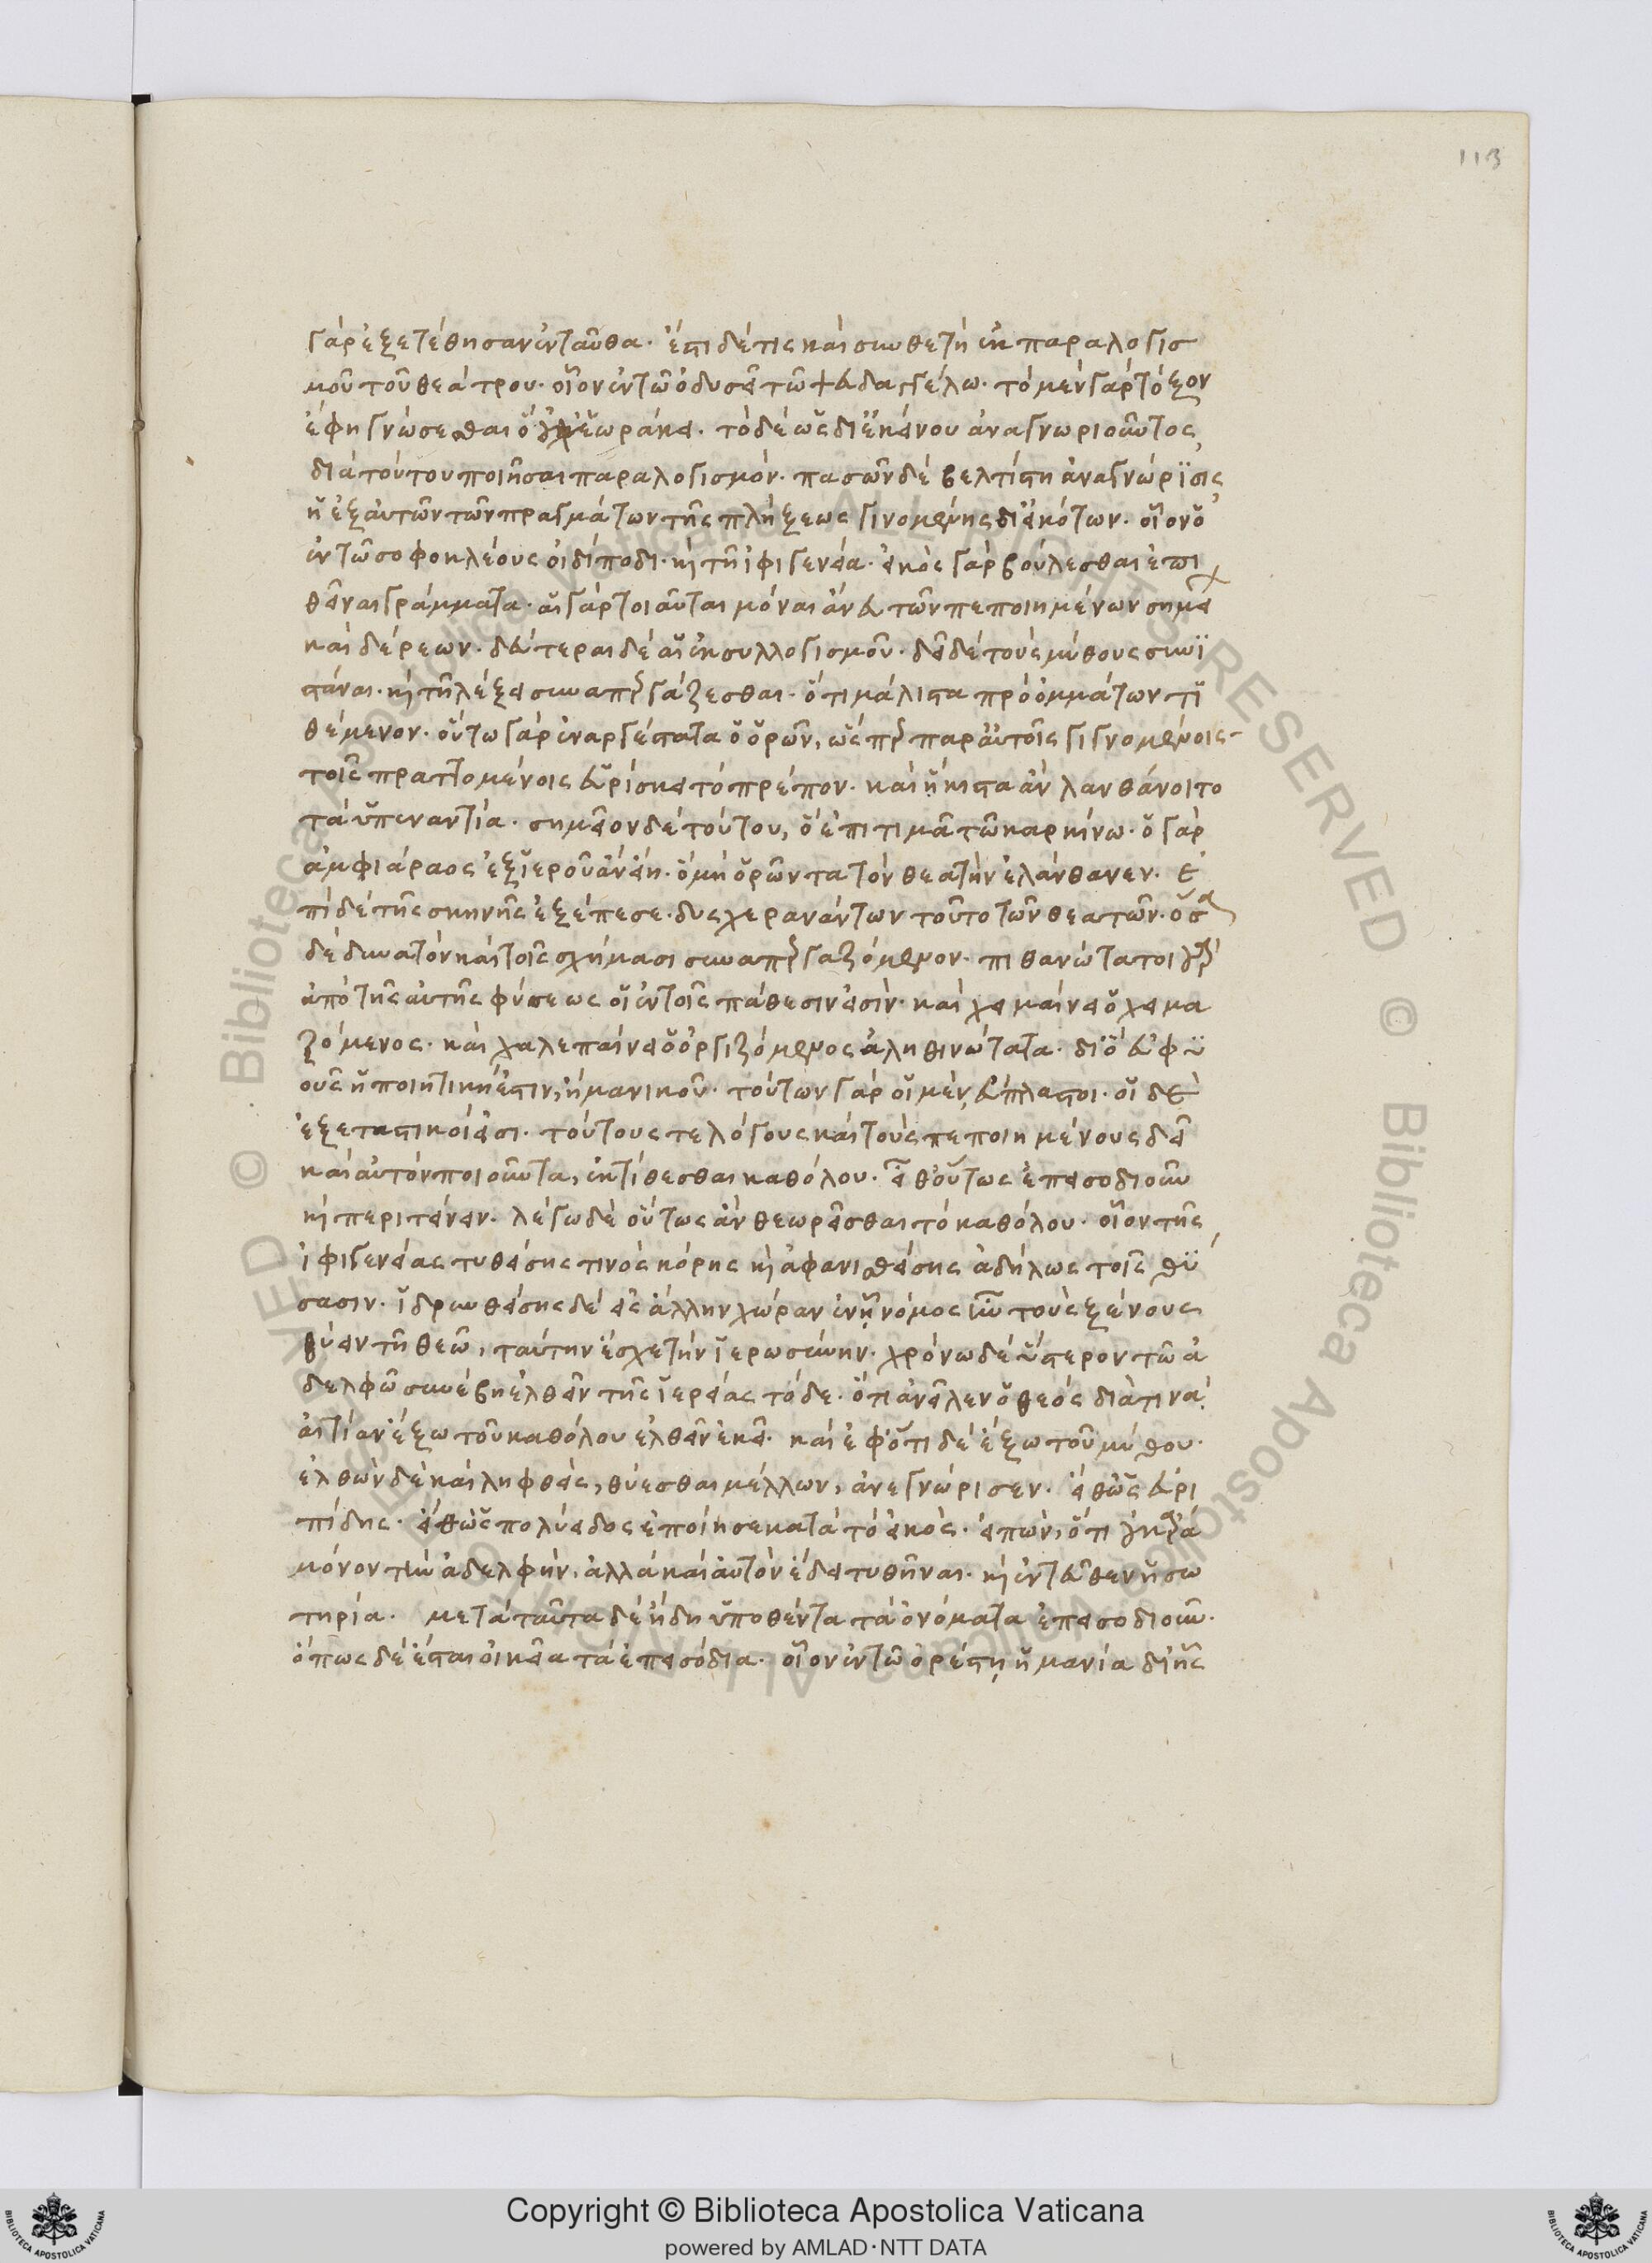 113
γὰρ ἐξετέθησαν ἐνταῦθα. ἔστι δέ τις καὶ συνθετὴ ἐκ παραλογισ
μοῦ τοῦ θεάτρου. οἷον ἐν τῷ ὀδυσεῖ τῷ ψευδαγγέλω. τὸ μὲν γὰρ τόξον
ἔφη γνώσεσθαι ὃ οὐχ ἑωράκει. τὸ δὲ ὡς δι' ἐκείνου ἀναγνωριοῦντος
διὰ τούτου ποιῆσαι παραλογισμόν. πασῶν δὲ βελτίστη ἀναγνώρϊσις
ἡ ἐξ αὐτῶν τῶν πραγμάτων τῆς πλήξεως γινομένης δι' εἰκότων. οἷον ὁ
ἐν τῷ σοφοκλέους οἰδίποδι. καὶ τῇ ἰφιγενεία. εἰκὸς γὰρ βούλεσθαι ἐπι
θεῖναι γράμματα. αἱ γὰρ τοιαῦται μόναι ἄνευ τῶν πεποιημένων σημεί
καὶ δέρεων. δεύτεραι δὲ αἱ ἐκ συλλογισμοῦ. δεῖ δὲ τοὺς μύθους συνϊ
στάναι. καὶ τῇ λέξει συναπεργάζεσθαι. ὅτι μάλιστα πρὸ ὀμμάτων τϊ
θέμενον. οὕτω γὰρ ἐναργέστατα ὁ ὁρῶν, ὥσπερ παρ' αὐτοῖς γιγνομένοις
τοῖς πραττομένοις εὑρίσκει τὸ πρέπον. καὶ ἥκιστα ἂν λανθάνοιτο
τὰ ὑπεναντία. σημεῖον δὲ τούτου, ὃ ἐπιτιμᾷ τῷ καρκίνω. ὁ γὰρ
ἀμφιάραος ἐξ ἱεροῦ ἀνείη. ὃ μὴ ὁρῶντα τὸν θεατὴν ἐλάνθανεν. ἐ
πὶ δὲ τῆς σκηνῆς ἐξέπεσε. δυσχερανάντων τοῦτο τῶν θεατῶν. ὅσα
δὲ δυνατὸν καὶ τοῖς σχήμασι συναπεργαζόμενον. πιθανώτατοι γὰρ
ἀπὸ τῆς αὐτῆς φύσεως οἱ ἐν τοῖς πάθεσιν εἰσίν. καὶ χειμαίνει ὁ χειμα
ζόμενος. καὶ χαλεπαίνει ὁ ὀργιζόμενος ἀληθινώτατα. διὸ εὐφϋ
οῦς ἡ ποιητική ἐστιν, ἢ μανικοῦ. τούτων γὰρ οἱ μὲν, εὔπλαστοι. οἱ δὲ
ἐξεταστικοί εἰσι. τούτους τε λόγους καὶ τοὺς πεποιημένους δεῖ
καὶ αὐτὸν ποιοῦντα, ἐκτίθεσθαι καθόλου. εἶθ' οὕτως ἐπεισοδιοῦν
καὶ περιτείνειν. λέγω δὲ οὕτως ἂν θεωρεῖσθαι τὸ καθόλου. οἷον τῆς
ἰφιγενείας τυθείσης τινὸς κόρης καὶ ἀφανισθείσης ἀδήλως τοῖς θϋ
σασιν. ἱδρυνθείσης δὲ εἰς ἄλλην χώραν ἐν ᾗ νόμος ἦν τοὺς ξένους
θύειν τῇ θεῷ, ταύτην ἔσχε τὴν ἱερωσύνην. χρόνω δὲ ὕστερον τῷ ἀ
δελφῷ συνέβη ἐλθεῖν τῆς ἱερείας τόδε. ὅτι ἀνεῖλεν ὁ θεὸς διά τινα
αἰτίαν ἔξω τοῦ καθόλου ἐλθεῖν ἐκεῖ. καὶ ἐφ' ὅτι δὲ ἔξω τοῦ μύθου.
ἐλθὼν δὲ καὶ ληφθεὶς, θύεσθαι μέλλων, ἀνεγνώρισεν. εἴθ' ὡς εὐρι
πίδης. εἴθ' ὡς πολύειδος ἐποίησε κατὰ τὸ εἰκὸς. εἰπὼν, ὅτι οὐκ ἄρα
μόνον τὴν ἀδελφὴν, ἀλλὰ καὶ αὐτὸν ἔδει τυθῆναι. καὶ ἐντεῦθεν ἡ σω
τηρία. μετὰ ταῦτα δὲ ἤδη ὑποθέντα τὰ ὀνόματα ἐπεισοδιοῦν.
ὅπως δὲ ἔσται οἰκεῖα τὰ ἐπεισόδια. οἷον ἐν τῷ ὀρέστῃ ἡ μανία δι' ἧς
Copyright © Biblioteca Apostolica Vaticana
powered by AMLAD·NTT DATA